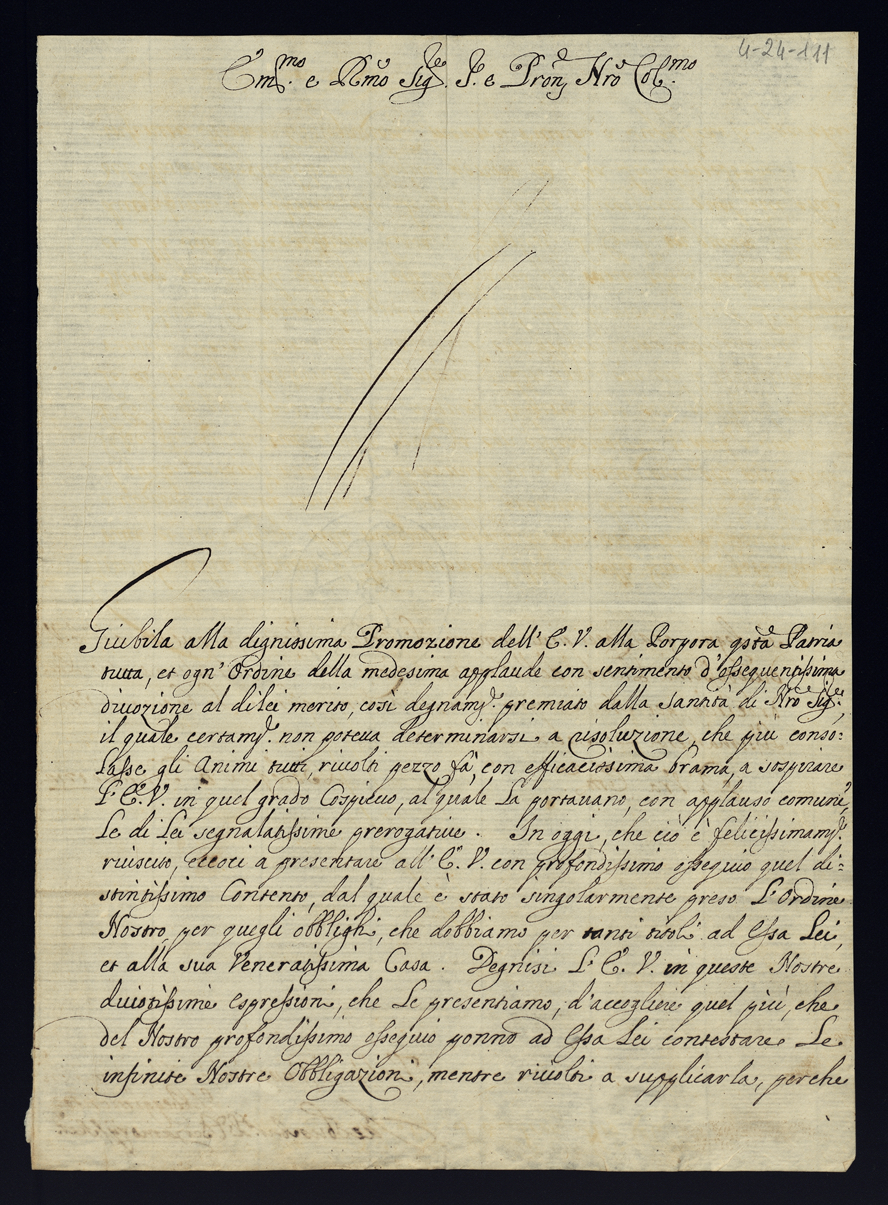 4-24-111
Em.mo e Rmo Sig.re P. e Pron Nro Col.mo
Giubila alla dignissima Promozione dell' E. V. alla Porpora qsta Patria
tutta, et ogn' Ordine della medesima applaude con sentimento d'ossequentissima
divozione al di lei merito, così degnam.te premiato dalla santità di Nro Sig.re,
il quale certam.te non poteva determinarsi a risoluzione, che più conso:
lasse gli Animi tutti, rivolti pezzo fà, con efficacissima brama, a sospirare
l' E. V. in quel grado Cospicuo, al quale La portavano, con applauso comune,
Le di Lei segnalatissime prerogative. In oggi, che ciò è felicissimam.te
riuscito, eccoci a presentare all' E. V. con profondissimo ossequio quel di:
stintissimo Contento, dal quale è stato singolarmente preso L'Ordine
Nostro, per quegli obblighi, che dobbiamo per tanti titoli ad Essa Lei,
et alla sua Veneratissima Casa. Degnisi L' E. V. in queste Nostre
divotissime espressioni, che Le presentiamo, d'accogliere quel più, che
del Nostro profondissimo ossequio ponno ad Essa Lei contestare Le
infinite Nostre Obbligazioni, mentre rivolti a supplicarla, perche